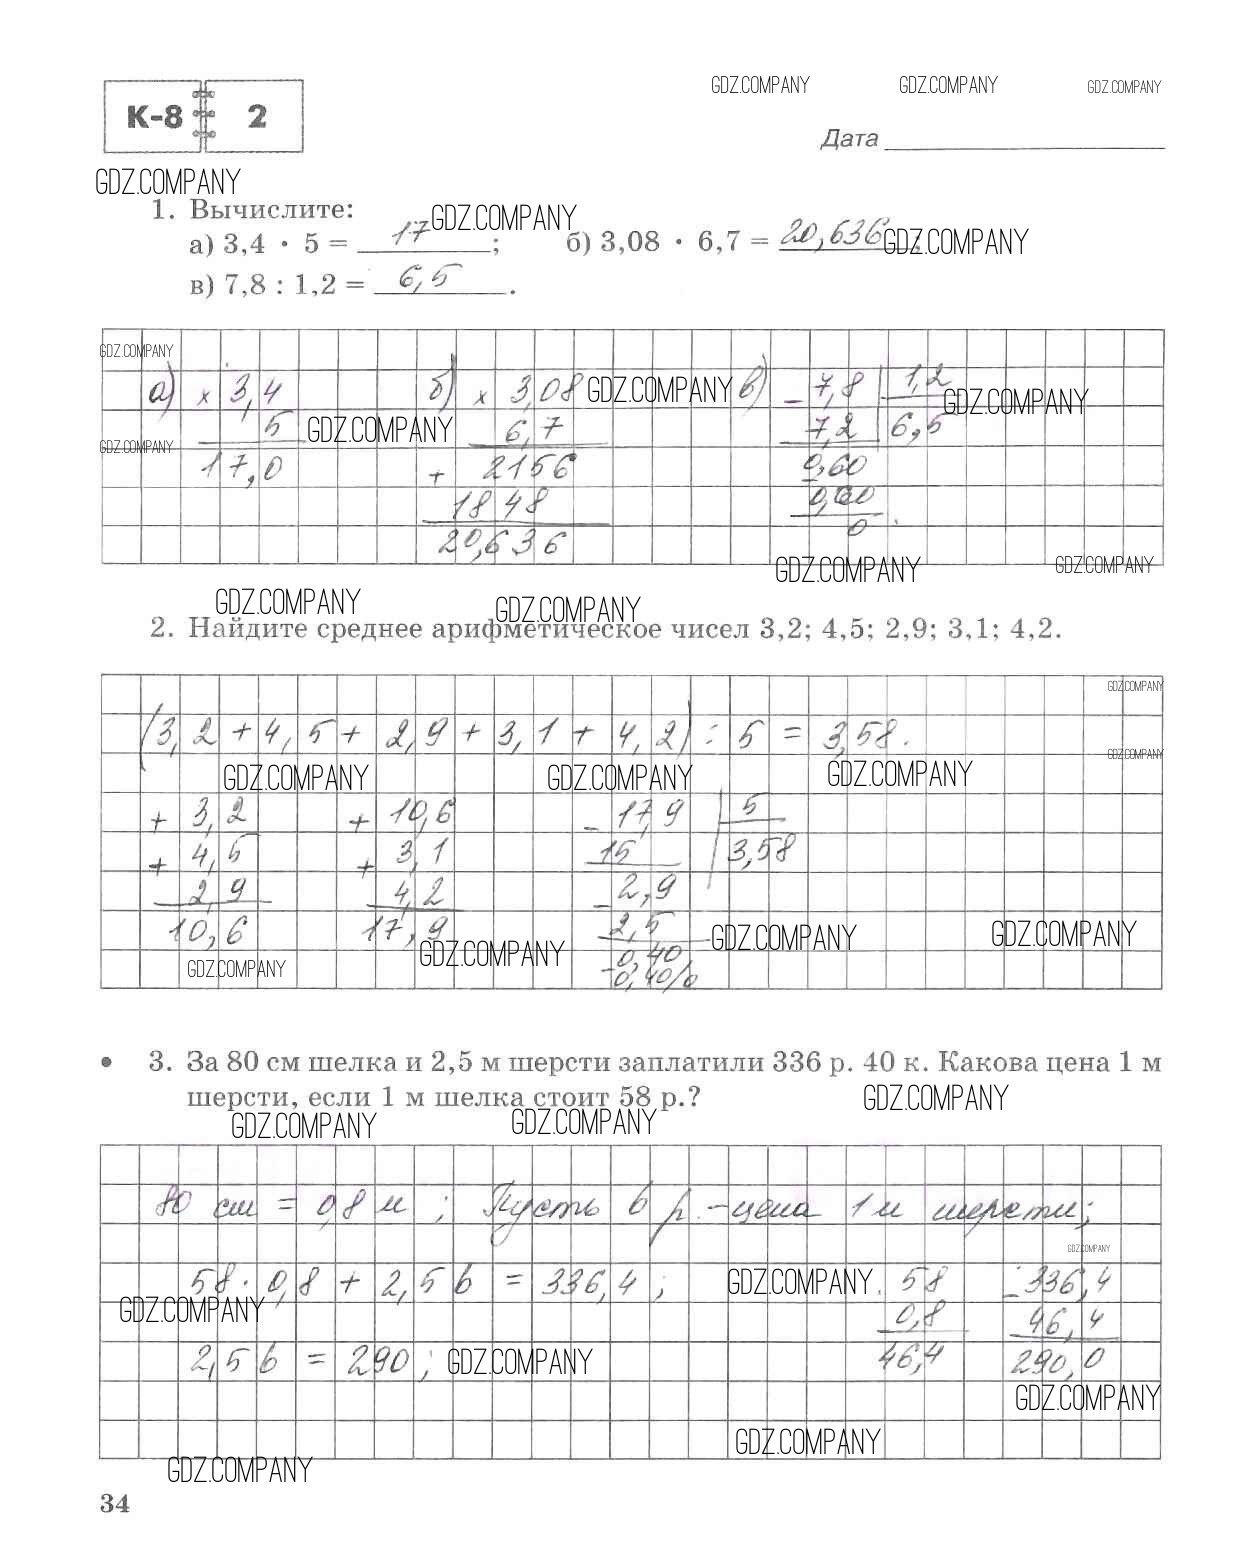 GDZ.COMPANY GDZ.COMPANY GDZ.COMPANY
К-8 2
Дата
GDZ.COMPANY
1. Вычислите:
GDZ.COMPANY
а) 3,4 · 5 = 17; б) 3,08 · 6,7 = 20,636;
GDZ.COMPANY
в) 7,8 : 1,2 = 6,5.
GDZ.COMPANY
а) × 3,4 б) × 3,08 GDZ.COMPANY в) - 7,8 1,2
5 GDZ.COMPANY 6,7 7,2 6,5 GDZ.COMPANY
GDZ.COMPANY
17,0 + 2156 0,60
1848 0,60
20,636 0
GDZ.COMPANY GDZ.COMPANY
GDZ.COMPANY GDZ.COMPANY
2. Найдите среднее арифметическое чисел 3,2; 4,5; 2,9; 3,1; 4,2.
GDZ.COMPANY
(3,2 + 4,5 + 2,9 + 3,1 + 4,2) : 5 = 3,58.
GDZ.COMPANY
GDZ.COMPANY GDZ.COMPANY GDZ.COMPANY
+ 3,2 + 10,6 - 17,9 5
+ 4,5 + 3,1 15 3,58
2,9 4,2 - 2,9
10,6 17,9 2,5
GDZ.COMPANY GDZ.COMPANY GDZ.COMPANY
GDZ.COMPANY - 0,40
0,40/0
• 3. За 80 см шелка и 2,5 м шерсти заплатили 336 р. 40 к. Какова цена 1 м
шерсти, если 1 м шелка стоит 58 р.?
GDZ.COMPANY
GDZ.COMPANY GDZ.COMPANY
80 см = 0,8 м; Пусть b р. - цена 1 м шерсти;
GDZ.COMPANY
58 · 0,8 + 2,5b = 336,4; GDZ.COMPANY 58 - 336,4
GDZ.COMPANY 0,8 46,4
2,5b = 290; GDZ.COMPANY 46,4 290,0
GDZ.COMPANY
GDZ.COMPANY
GDZ.COMPANY
34